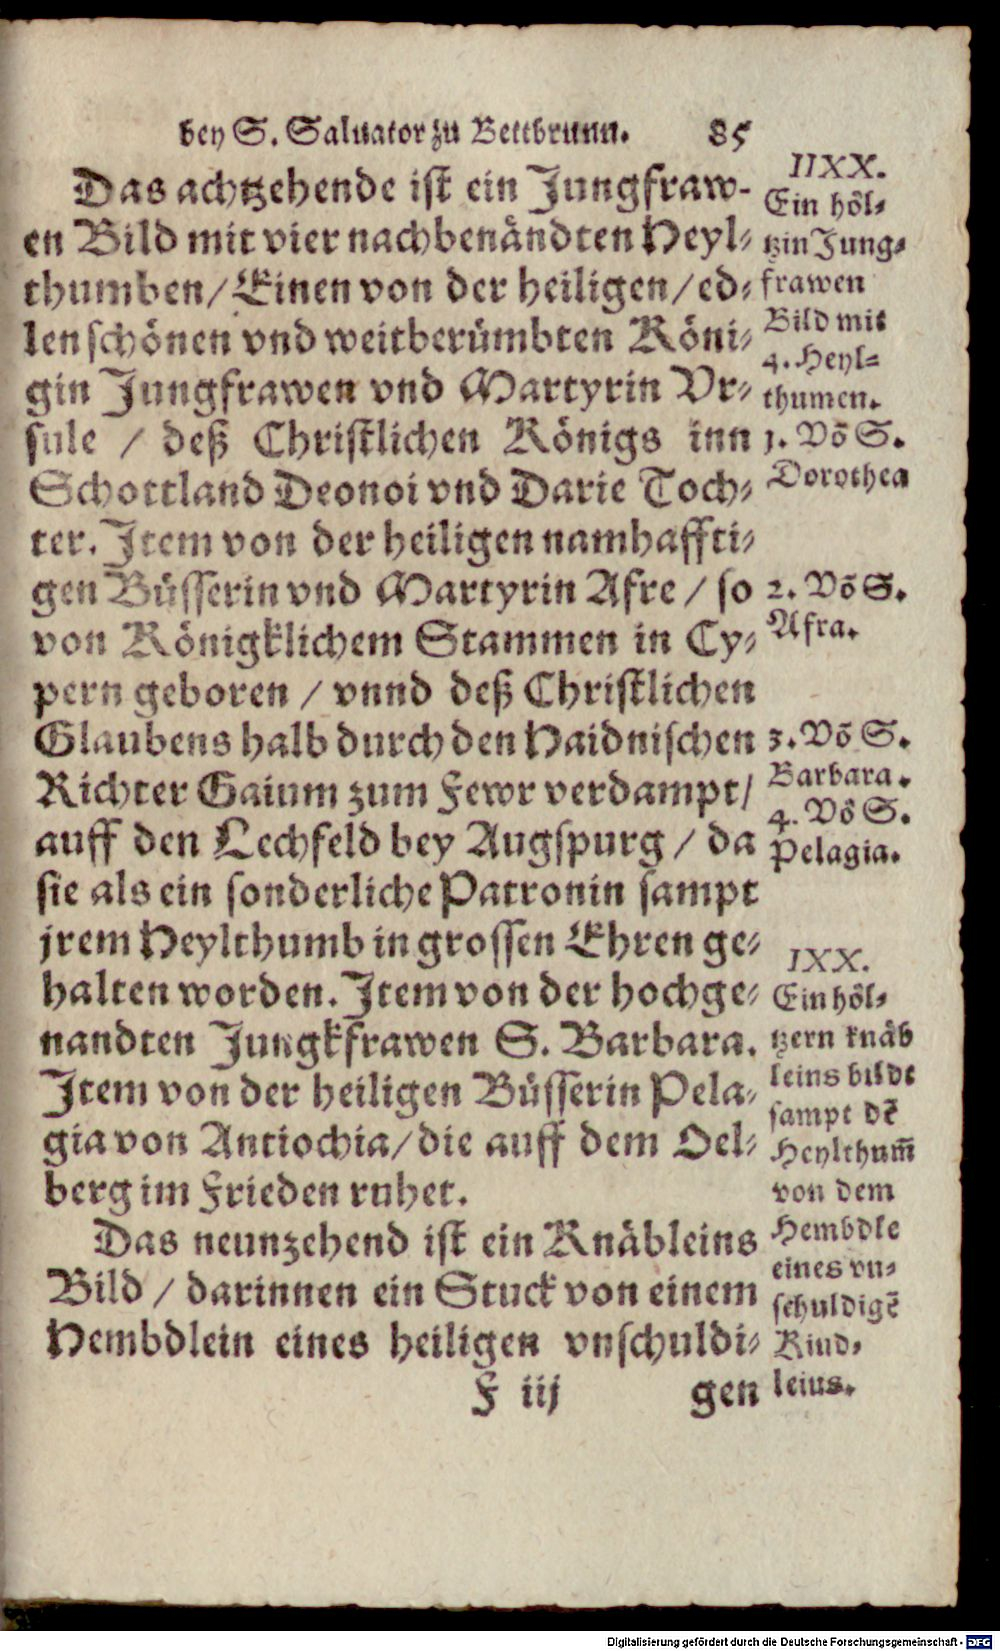 bey S. Saluator zu Bettbrunn. 85
Das achtzehende ist ein Jungfraw-
en Bild mit vier nachbenändten Heyl-
thumben / Einen von der heiligen / ed-
len schönen vnd weitberümbten Köni-
gin Jungfrawen vnd Martyrin Vr-
sule / deß Christlichen Königs inn
Schottland Deonoi vnd Darie Toch-
ter. Item von der heiligen namhaffti-
gen Büsserin vnd Martyrin Afre / so
von Königklichem Stammen in Cy-
pern geboren / vnnd deß Christlichen
Glaubens halb durch den Haidnischen
Richter Gaium zum Fewr verdampt /
auff den Lechfeld bey Augspurg / da
sie als ein sonderliche Patronin sampt
jrem Heylthumb in grossen Ehren ge-
halten worden. Item von der hochge-
nandten Jungkfrawen S. Barbara.
Item von der heiligen Büsserin Pela-
gia von Antiochia / die auff dem Oel-
berg im Frieden ruhet.
Das neunzehend ist ein Knäbleins
Bild / darinnen ein Stuck von einem
Hembdlein eines heiligen vnschuldi-
F iij gen
IIXX.
Ein höl-
tzin Jung-
frawen
Bild mit
4. Heyl-
thumen.
1. Võ S.
Dorothea
2. Võ S.
Afra.
3. Võ S.
Barbara.
4. Võ S.
Pelagia.
IXX.
Ein höl-
tzern knäb
leins bildt
sampt dẽ
Heylthum̃
von dem
Hembdle
eines vn-
schuldigẽ
Kind-
leins.
Digitalisierung gefördert durch die Deutsche Forschungsgemeinschaft - DFG